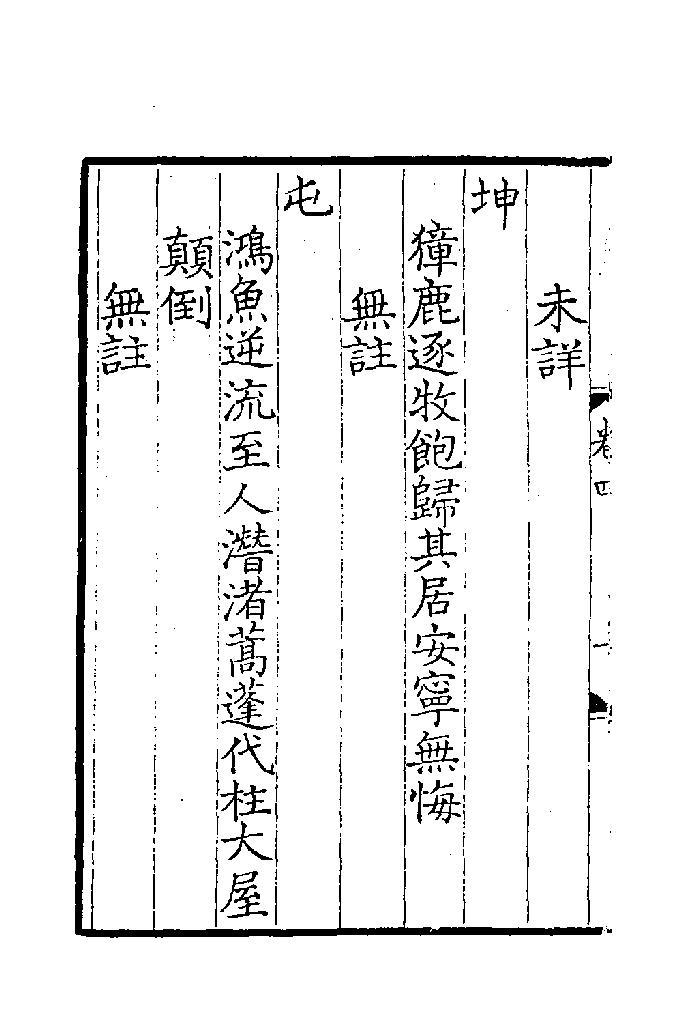 未詳
坤
獐鹿逐牧飽歸其居安寧無悔
無註
屯
鴻魚逆流至人潛渚蒿蓬代柱大屋
顛倒
無註
卷四